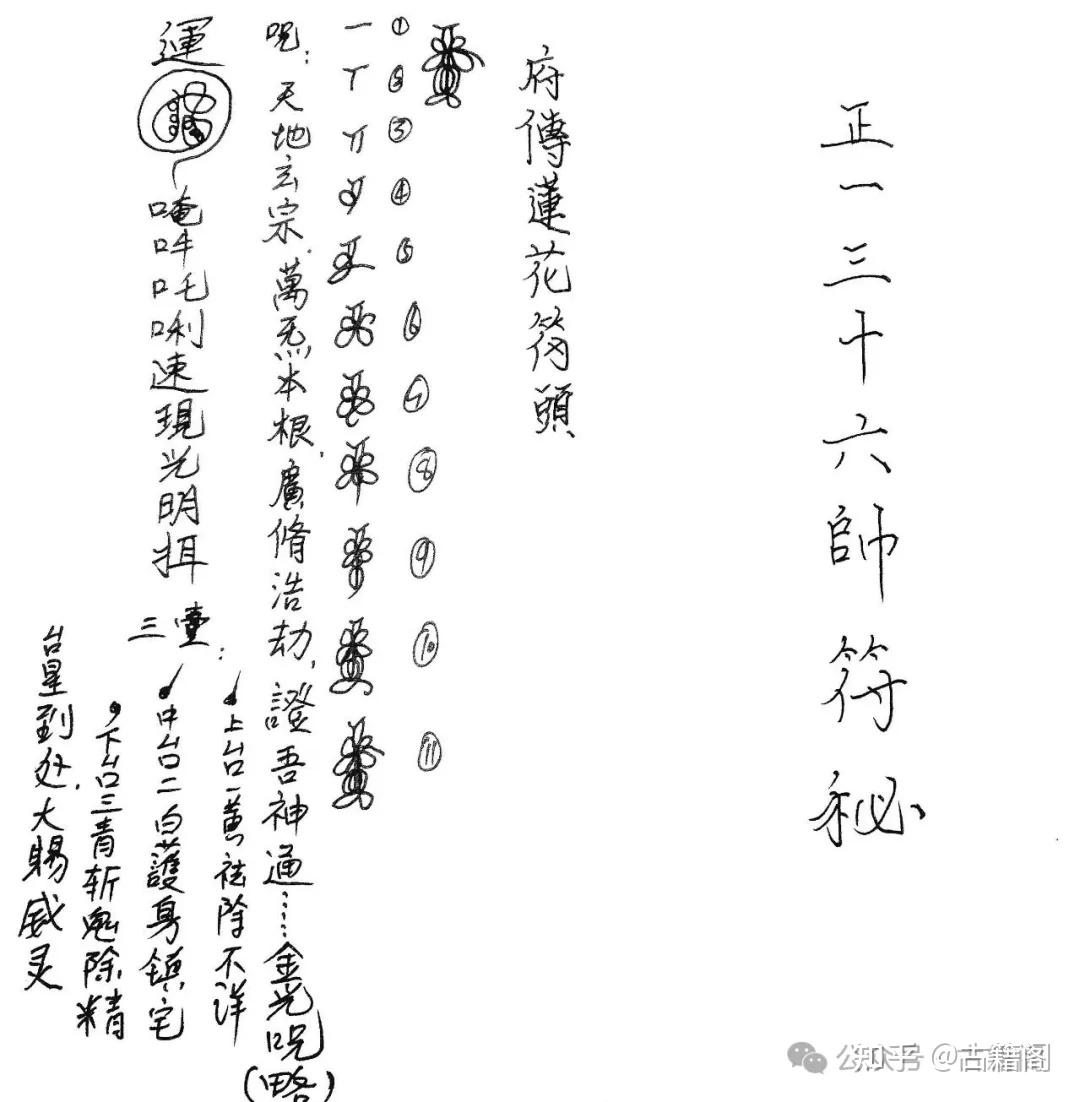 正一三十六帥符秘
府傳蓮花符頭
① ② ③ ④ ⑤ ⑥ ⑦ ⑧ ⑨ ⑩ ⑪
呪:天地玄宗.萬炁本根.廣脩浩劫,證吾神通……金光呪(略)
運
唵吽吒唎速現光明揖
三臺:
上台一黃祛除不洋
中台二白護身鎮宅
下台三青斬鬼除精
台星到处,大賜威灵
知乎 @古籍阁